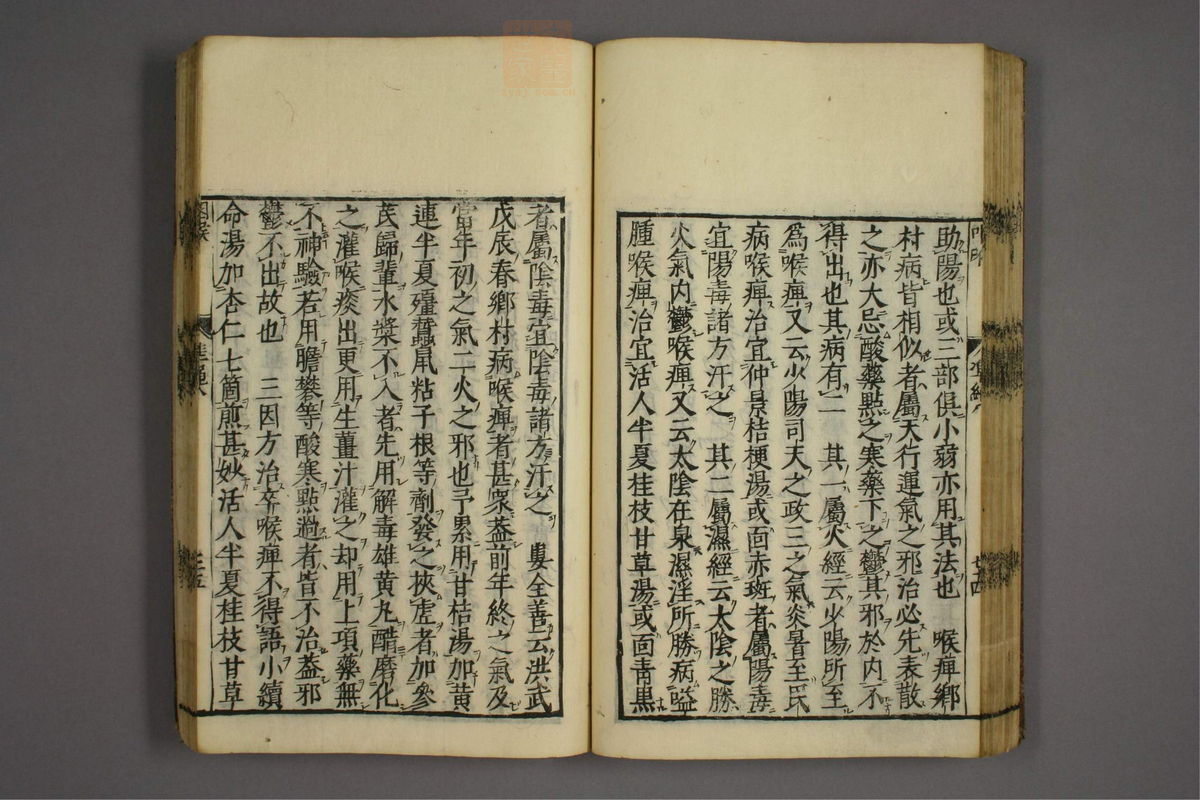 助陽也或三部俱小弱亦用其法也　喉痺鄉
村病皆相似者屬天行運氣之邪治必先表散
之亦大忌酸藥點之寒藥下之鬱其邪於内不
得出也其病有二　其一屬火經云少陽所至
爲喉痺又云少陽司天之政三之氣炎暑至民
病喉痺治宜仲景桔梗湯或面赤斑者屬陽毒
宜陽毒諸方汗之　其二屬濕經云太陰之勝
火氣内鬱喉痺又云太陰在泉濕淫所勝病嗌
腫喉痺治宜活人半夏桂枝甘草湯或面青黑
者屬陰毒宜陰毒諸方汗之　婁全善云洪武
戊辰春鄉村病喉痺者甚衆蓋前年終之氣及
當年初之氣二火之邪也予累用甘桔湯加黄
連半夏殭蠶鼠粘子根等劑發之挾虛者加參
芪歸輩水漿不入者先用解毒雄黄丸醋磨化
之灌喉痰出更用生薑汁灌之却用上項藥無
不神驗若用膽礬等酸寒點過者皆不治蓋邪
鬱不出故也　三因方治卒喉痺不得語小續
命湯加杏仁七箇煎甚妙活人半夏桂枝甘草